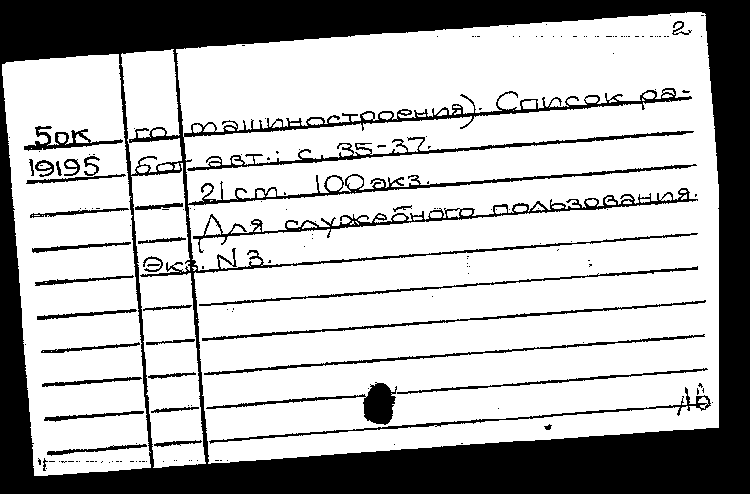 2
5ок го машиностроения). Список ра-
19195 бот авт.: с. 35-37.
21 см. 100 экз.
Для служебного пользования.
Экз. N 3.